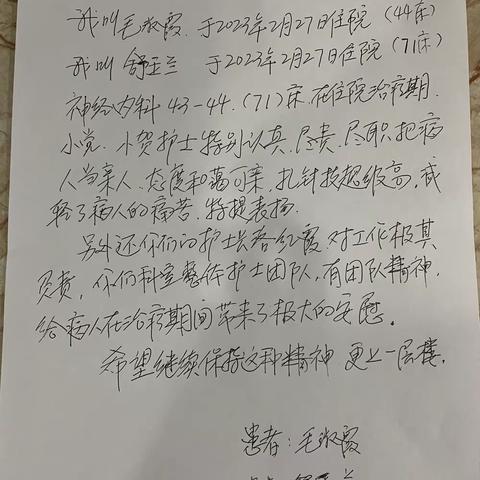 我叫毛淑霞.于2023年2月27日住院(44床)
我叫舒玉兰 于2023年2月27日住院(71床)
神经内科43-44.(71)床.在住院治疗期.
小党.小贺护士特别认真.尽责.尽职把病
人当亲人.态度和蔼可亲.扎针技超级高,减
轻了病人的痛苦.特提表扬.
另外还你们的护士长 红霞 对工作极其
负责,你们科室整体护士团队,有团队精神,
给病人在治疗期间带来了极大的安慰.
希望继续保持这种精神 更上一层楼.
患者:毛淑霞